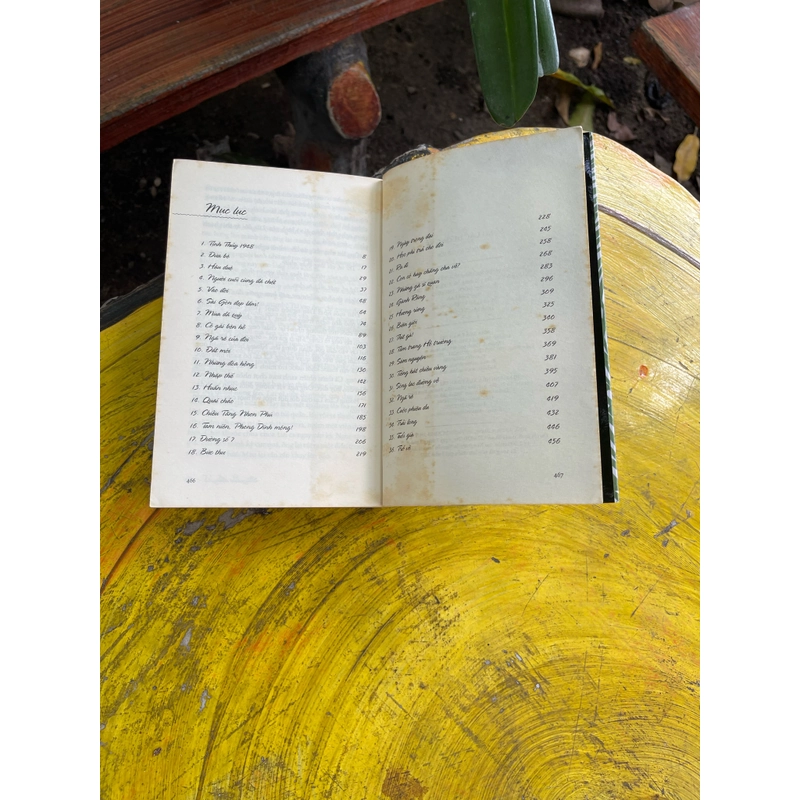 Mục lục
1. Bình Thủy 1948
2. Đứa bé 8
3. Hòn đạn 17
4. Người cuối cùng đã chết 29
5. Vào đời 37
6. Sài Gòn đẹp lắm! 48
7. Mùa đá quý 64
8. Cô gái bên hồ 74
9. Ngã rẽ cuộc đời 89
10. Đất mới 103
11. Những đóa hồng 116
12. Nhập thế 130
13. Huấn nhục 142
14. Quai chảo 156
15. Chiều Tăng Nhơn Phú 171
16. Tam niên, Phong Dinh mộng! 185
17. Đường số 7 198
18. Bức thư 206
219
456
19. Ngày trọng đại 228
20. Học phí trả cho đời 245
21. Ra đi 258
22. Con có hay chăng cha về? 268
23. Những gã sĩ quan 283
24. Gánh Đồng 296
25. Hương rừng 309
26. Biên giới 325
27. Thế giá! 340
28. Tâm trạng Hồ Trường 358
29. Sơn nguyên 369
30. Tiếng hát chiều vàng 381
31. Song lạc đường về 395
32. Ngã rẽ 407
33. Cuộc phiêu du 419
34. Trải lòng 432
35. Tuổi già 446
36. Trở về 456
457